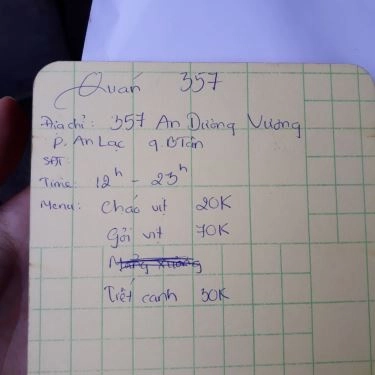 Quán 357
Địa chỉ: 357 An Dương Vương
P. An Lạc q. BTân
SĐT:
Time: 12h - 23h
Menu: Cháo vịt 20K
Gỏi vịt 70K
Tiết canh 30K